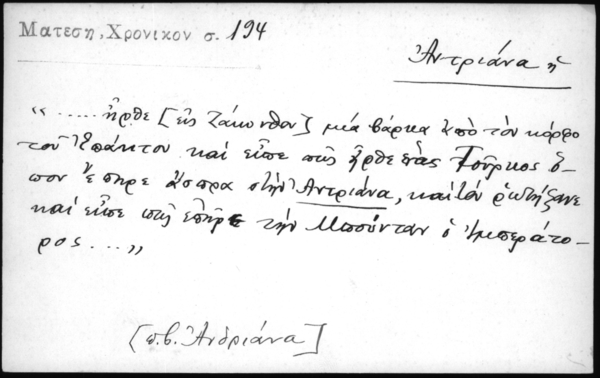 Ματεση, Χρονικον σ. 194
Ἀντριάνα ἡ
“ ..... ἦρθε [εἰς Ζάκυνθον] μία βάρκα ἀπὸ τὸν κόρφο
τοῦ Ἐπάκτου καὶ εἶπε πῶς ἦρθε ἕνας Τοῦρκος ὅ-
που ἔπηρε ἄσπρα στὴν Ἀντριάνα, καὶ τὸν ρωτήξανε
καὶ εἶπε πῶς ἐπῆρε τὴν Μπούνταν ὁ Ἰμπεράτο-
ρος.... ”
[π.β. Ἀνδριάνα]